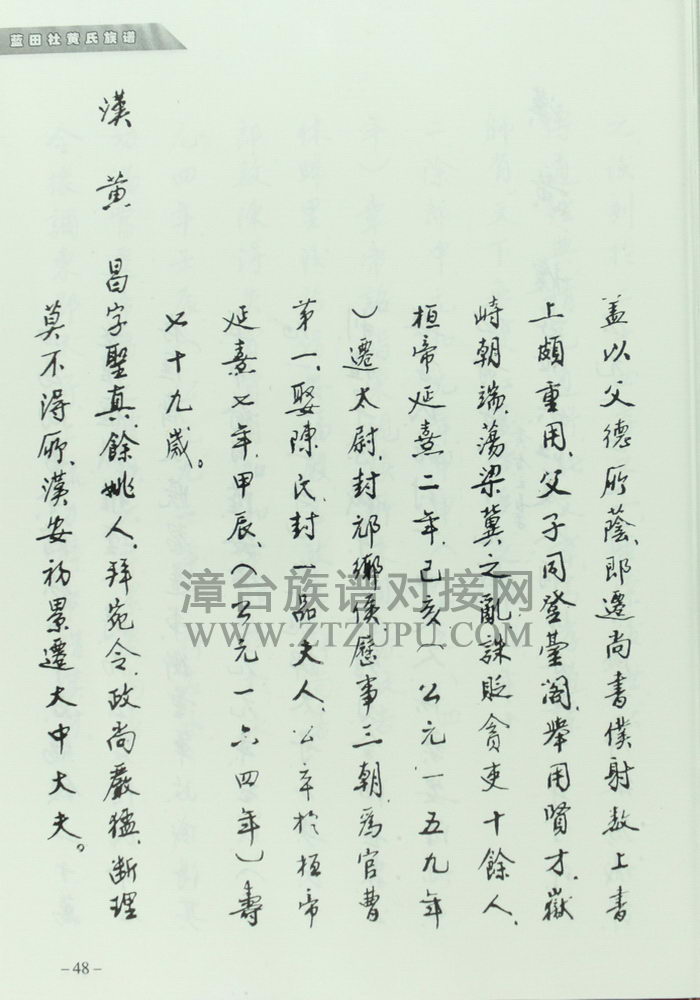 蓝田社黄氏族谱
盖以父德所蔭、即遷尚書僕射、数上書
上頗重用、父子同登臺閣、舉用賢才、嶽
峙朝端、蕩梁冀之亂、誅貶貪吏十餘人、
桓帝延熹二年、己亥（公元一五九年
）遷太尉、封邟鄉侯、歷事三朝、爲官曹
第一、娶陳氏、封一品夫人、公卒於桓帝
延熹七年、甲辰、（公元一六四年）壽
七十九歲。
漢 黄 昌字聖真、餘姚人、拜宛令、政尚嚴猛、断理
莫不得所、漢安初、累遷大中大夫。
漳台族谱对接网
WWW.ZTZUPU.COM
-48-